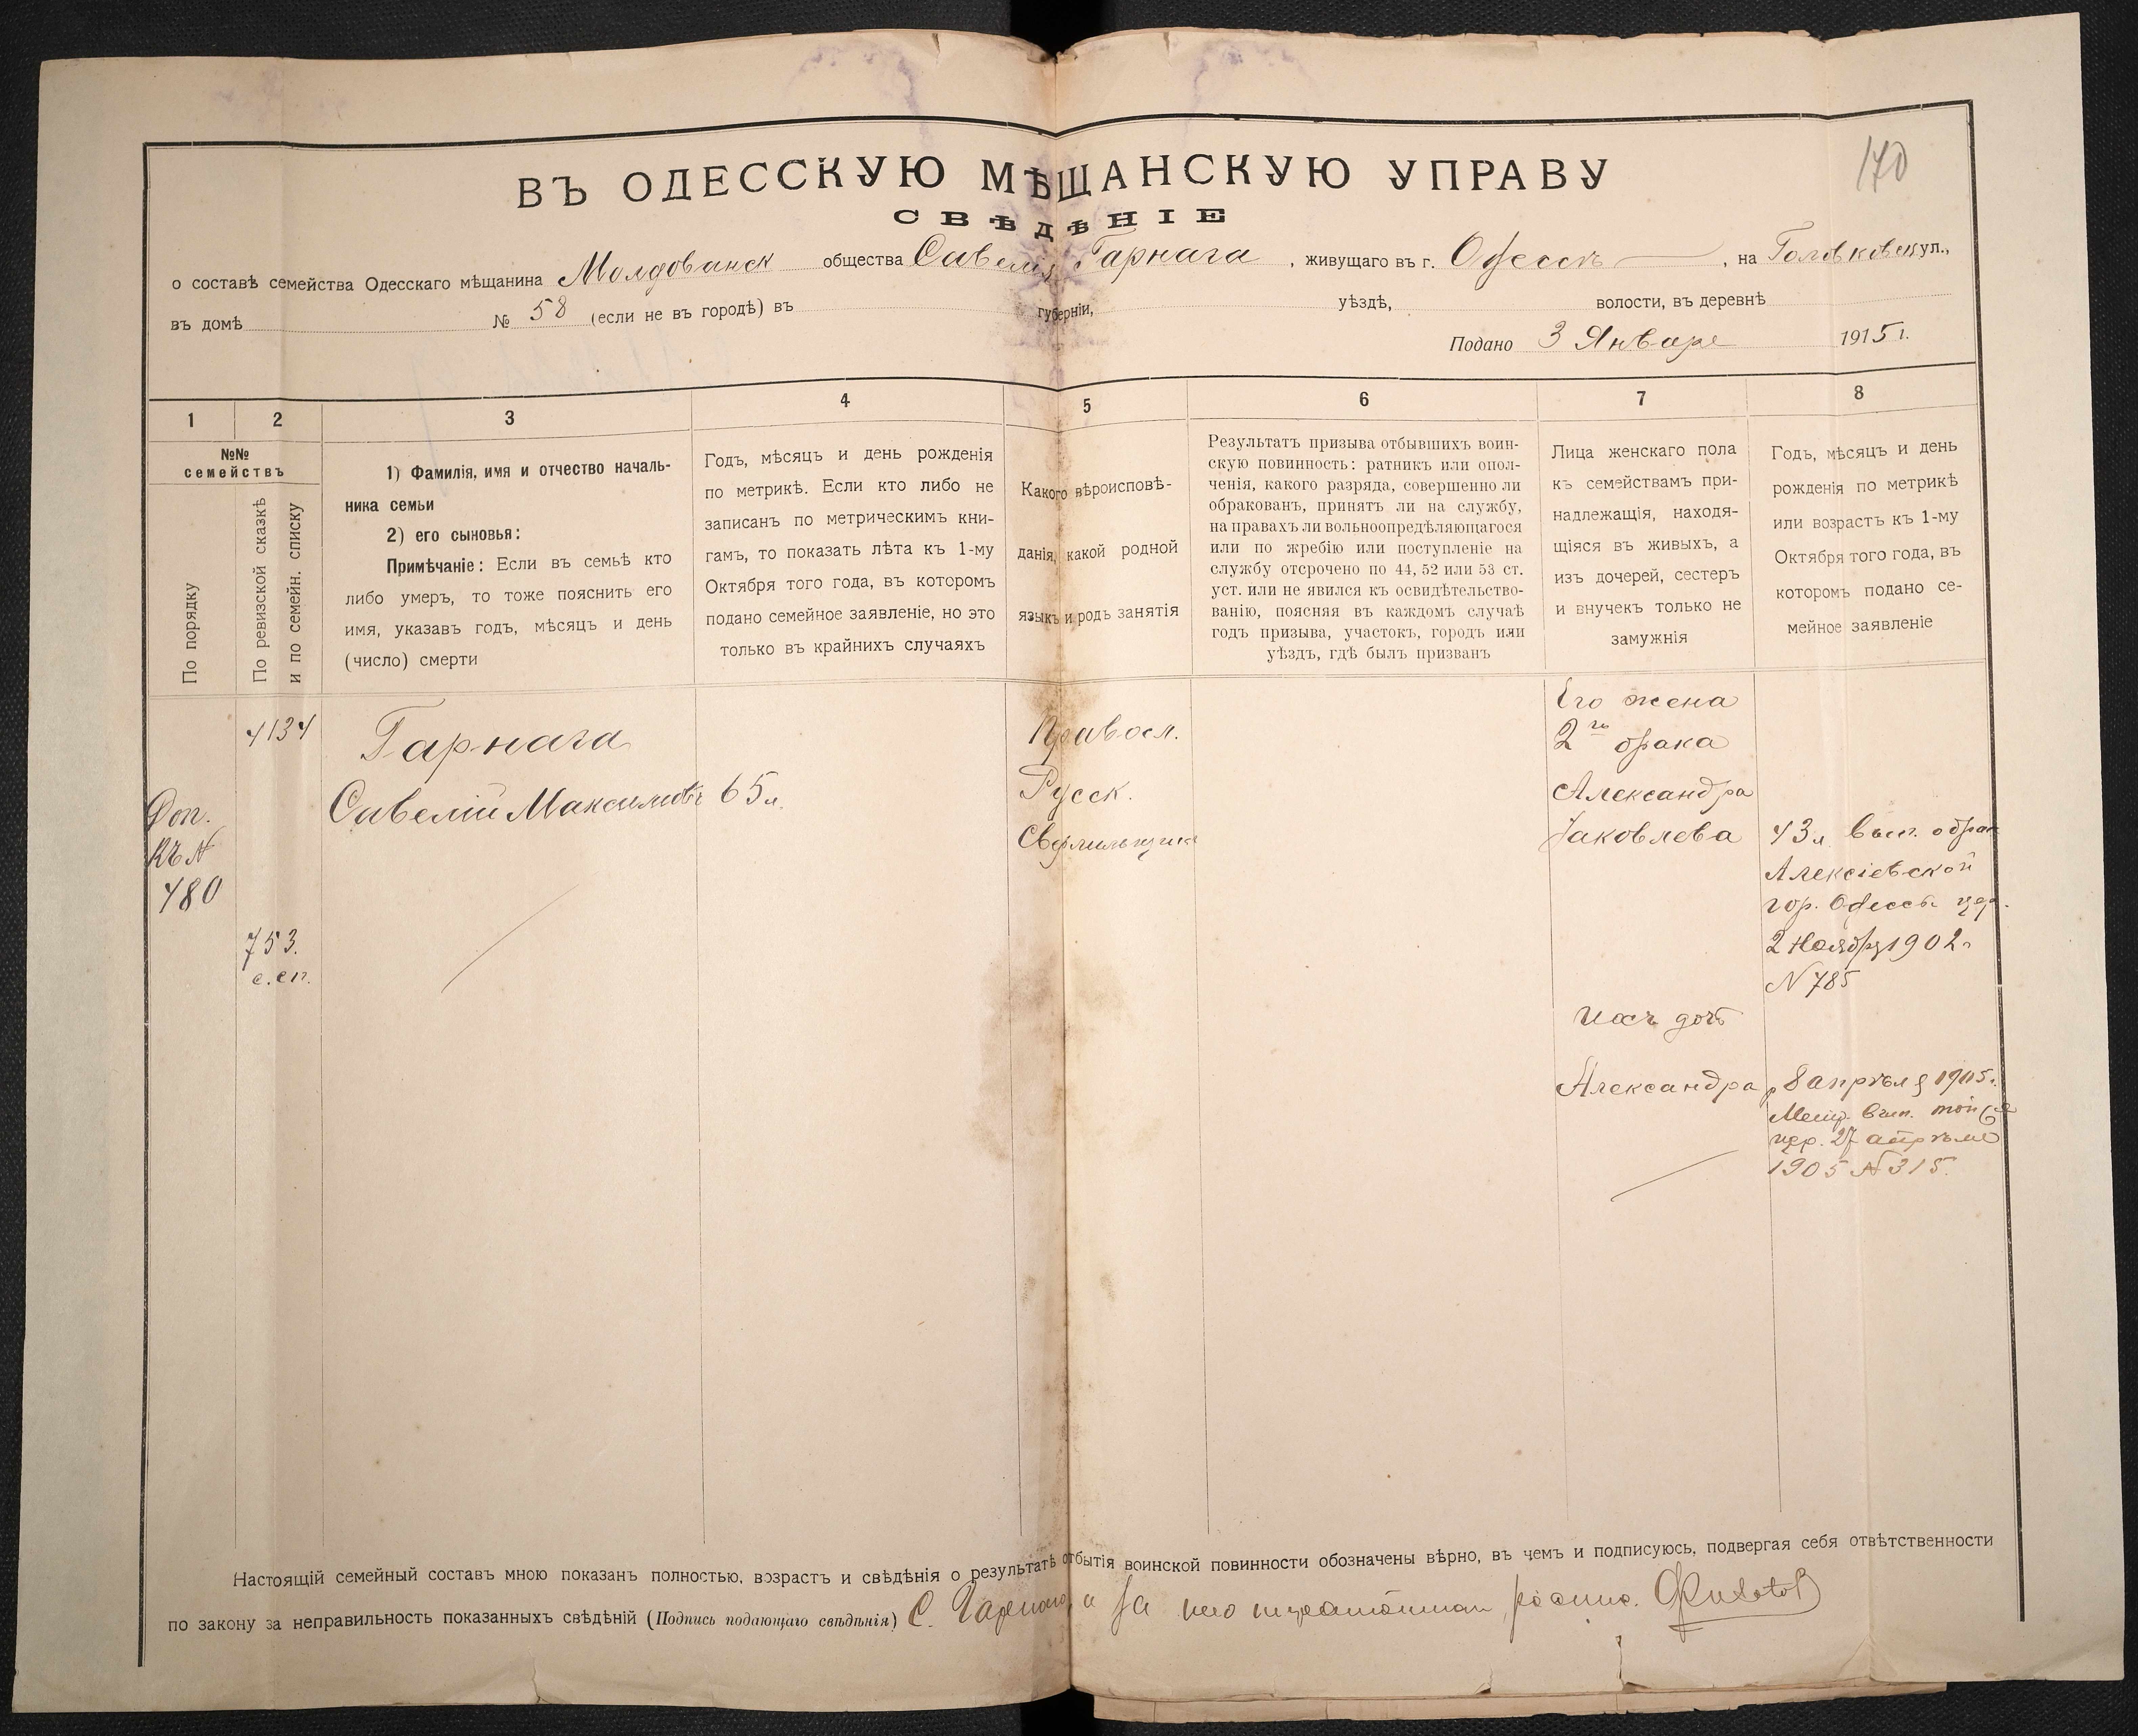 170
ВЪ ОДЕССКУЮ МѢЩАНСКУЮ УПРАВУ
СВѢДѢНІЕ
о составѣ семейства Одесскаго мѣщанина Молдованск общества Савелія Гарнага, живущаго въ г. Одессѣ, на Головковск ул.,
въ домѣ № 58 (если не въ городѣ) въ губерніи, уѣздѣ, волости, въ деревнѣ
Подано 3 Января 1915 г.
1 2 3 4 5 6 7 8
№№
семействъ
По порядку
По ревизской сказкѣ
и по семейн. списку
1) Фамилія, имя и отчество началь-
ника семьи
2) его сыновья:
Примѣчаніе: Если въ семьѣ кто
либо умеръ, то тоже пояснить его
имя, указавъ годъ, мѣсяцъ и день
(число) смерти
Годъ, мѣсяцъ и день рожденія
по метрикѣ. Если кто либо не
записанъ по метрическимъ кни-
гамъ, то показать лѣта къ 1-му
Октября того года, въ которомъ
подано семейное заявленіе, но это
только въ крайнихъ случаяхъ
Какого вѣроисповѣ-
данія, какой родной
языкъ и родъ занятія
Результатъ призыва отбывшихъ воин-
скую повинность: ратникъ или опол-
ченія, какого разряда, совершенно ли
обракованъ, принятъ ли на службу,
на правахъ ли вольноопредѣляющагося
или по жребію или поступленіе на
службу отсрочено по 44, 52 или 53 ст.
уст. или не явился къ освидѣтельство-
ванію, поясняя въ каждомъ случаѣ
годъ призыва, участокъ, городъ или
уѣздъ, гдѣ былъ призванъ
Лица женскаго пола
къ семействамъ при-
надлежащія, находя-
щіяся въ живыхъ, а
изъ дочерей, сестеръ
и внучекъ только не
замужнія
Годъ, мѣсяцъ и день
рожденія по метрикѣ
или возрастъ къ 1-му
Октября того года, въ
которомъ подано се-
мейное заявленіе
Доп.
къ №
480
4134
753.
с. сп.
Гарнага
Савелій Максимовъ 65 л.
Правосл.
Русск.
Его жена
2го брака
Александра
Яковлева
43 л. вып. о брак
Алексіевской
гор. Одессы цер.
2 Ноября 1902 г
N 785
ихъ дочь
Александра
р 8 апрѣля 1905 г.
Метр. вып. той же
цер. 27 апрѣля
1905 № 315.
Настоящій семейный составъ мною показанъ полностью, возрастъ и свѣдѣнія о результатѣ отбытія воинской повинности обозначены вѣрно, въ чемъ и подписуюсь, подвергая себя отвѣтственности
по закону за неправильность показанныхъ свѣдѣній (Подпись подающаго свѣдѣнія) С. Гарнага, а за него